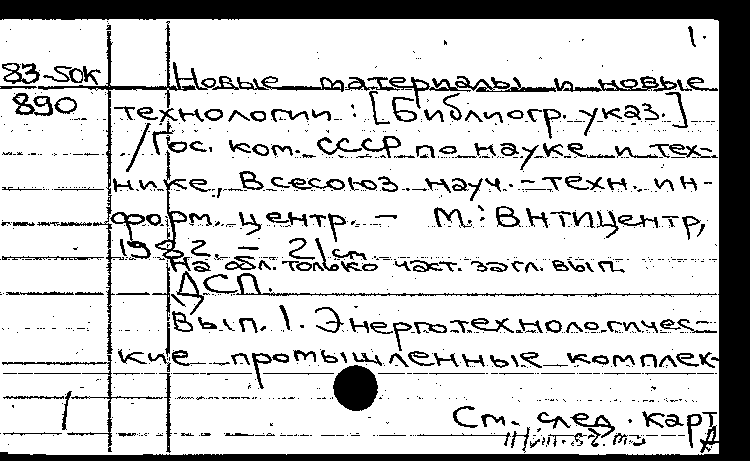 1.
83-50к Новые материалы и новые
890 технологии : [Библиогр. указ.]
/Гос. ком. СССР по науке и тех-
нике, Всесоюз. науч.-техн. ин-
форм. центр. – М.: ВНТИЦентр,
1982. – 21 см.
На обл. только част. загл. вып.
ДСП.
Вып. 1. Энерготехнологичес-
кие промышленные комплек-
См. след. карт
1